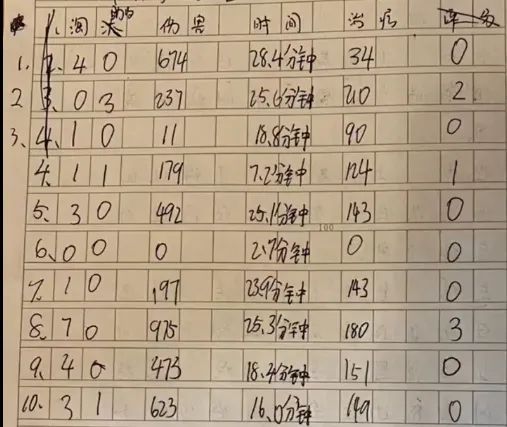 淘汰 助攻 伤害 时间 治疗
1. 4 0 674 28.4分钟 34 0
2 0 3 237 25.6分钟 210 2
3、 1 0 11 18.8分钟 90 0
4. 1 1 179 7.2分钟 124 1
5. 3 0 492 25.1分钟 143 0
6、 0 0 0 2.7分钟 0 0
7. 1 0 197 23.9分钟 143 0
8. 7 0 975 25.3分钟 180 3
9. 4 0 473 18.4分钟 151 0
100
10. 3 1 623 16.0分钟 149 0